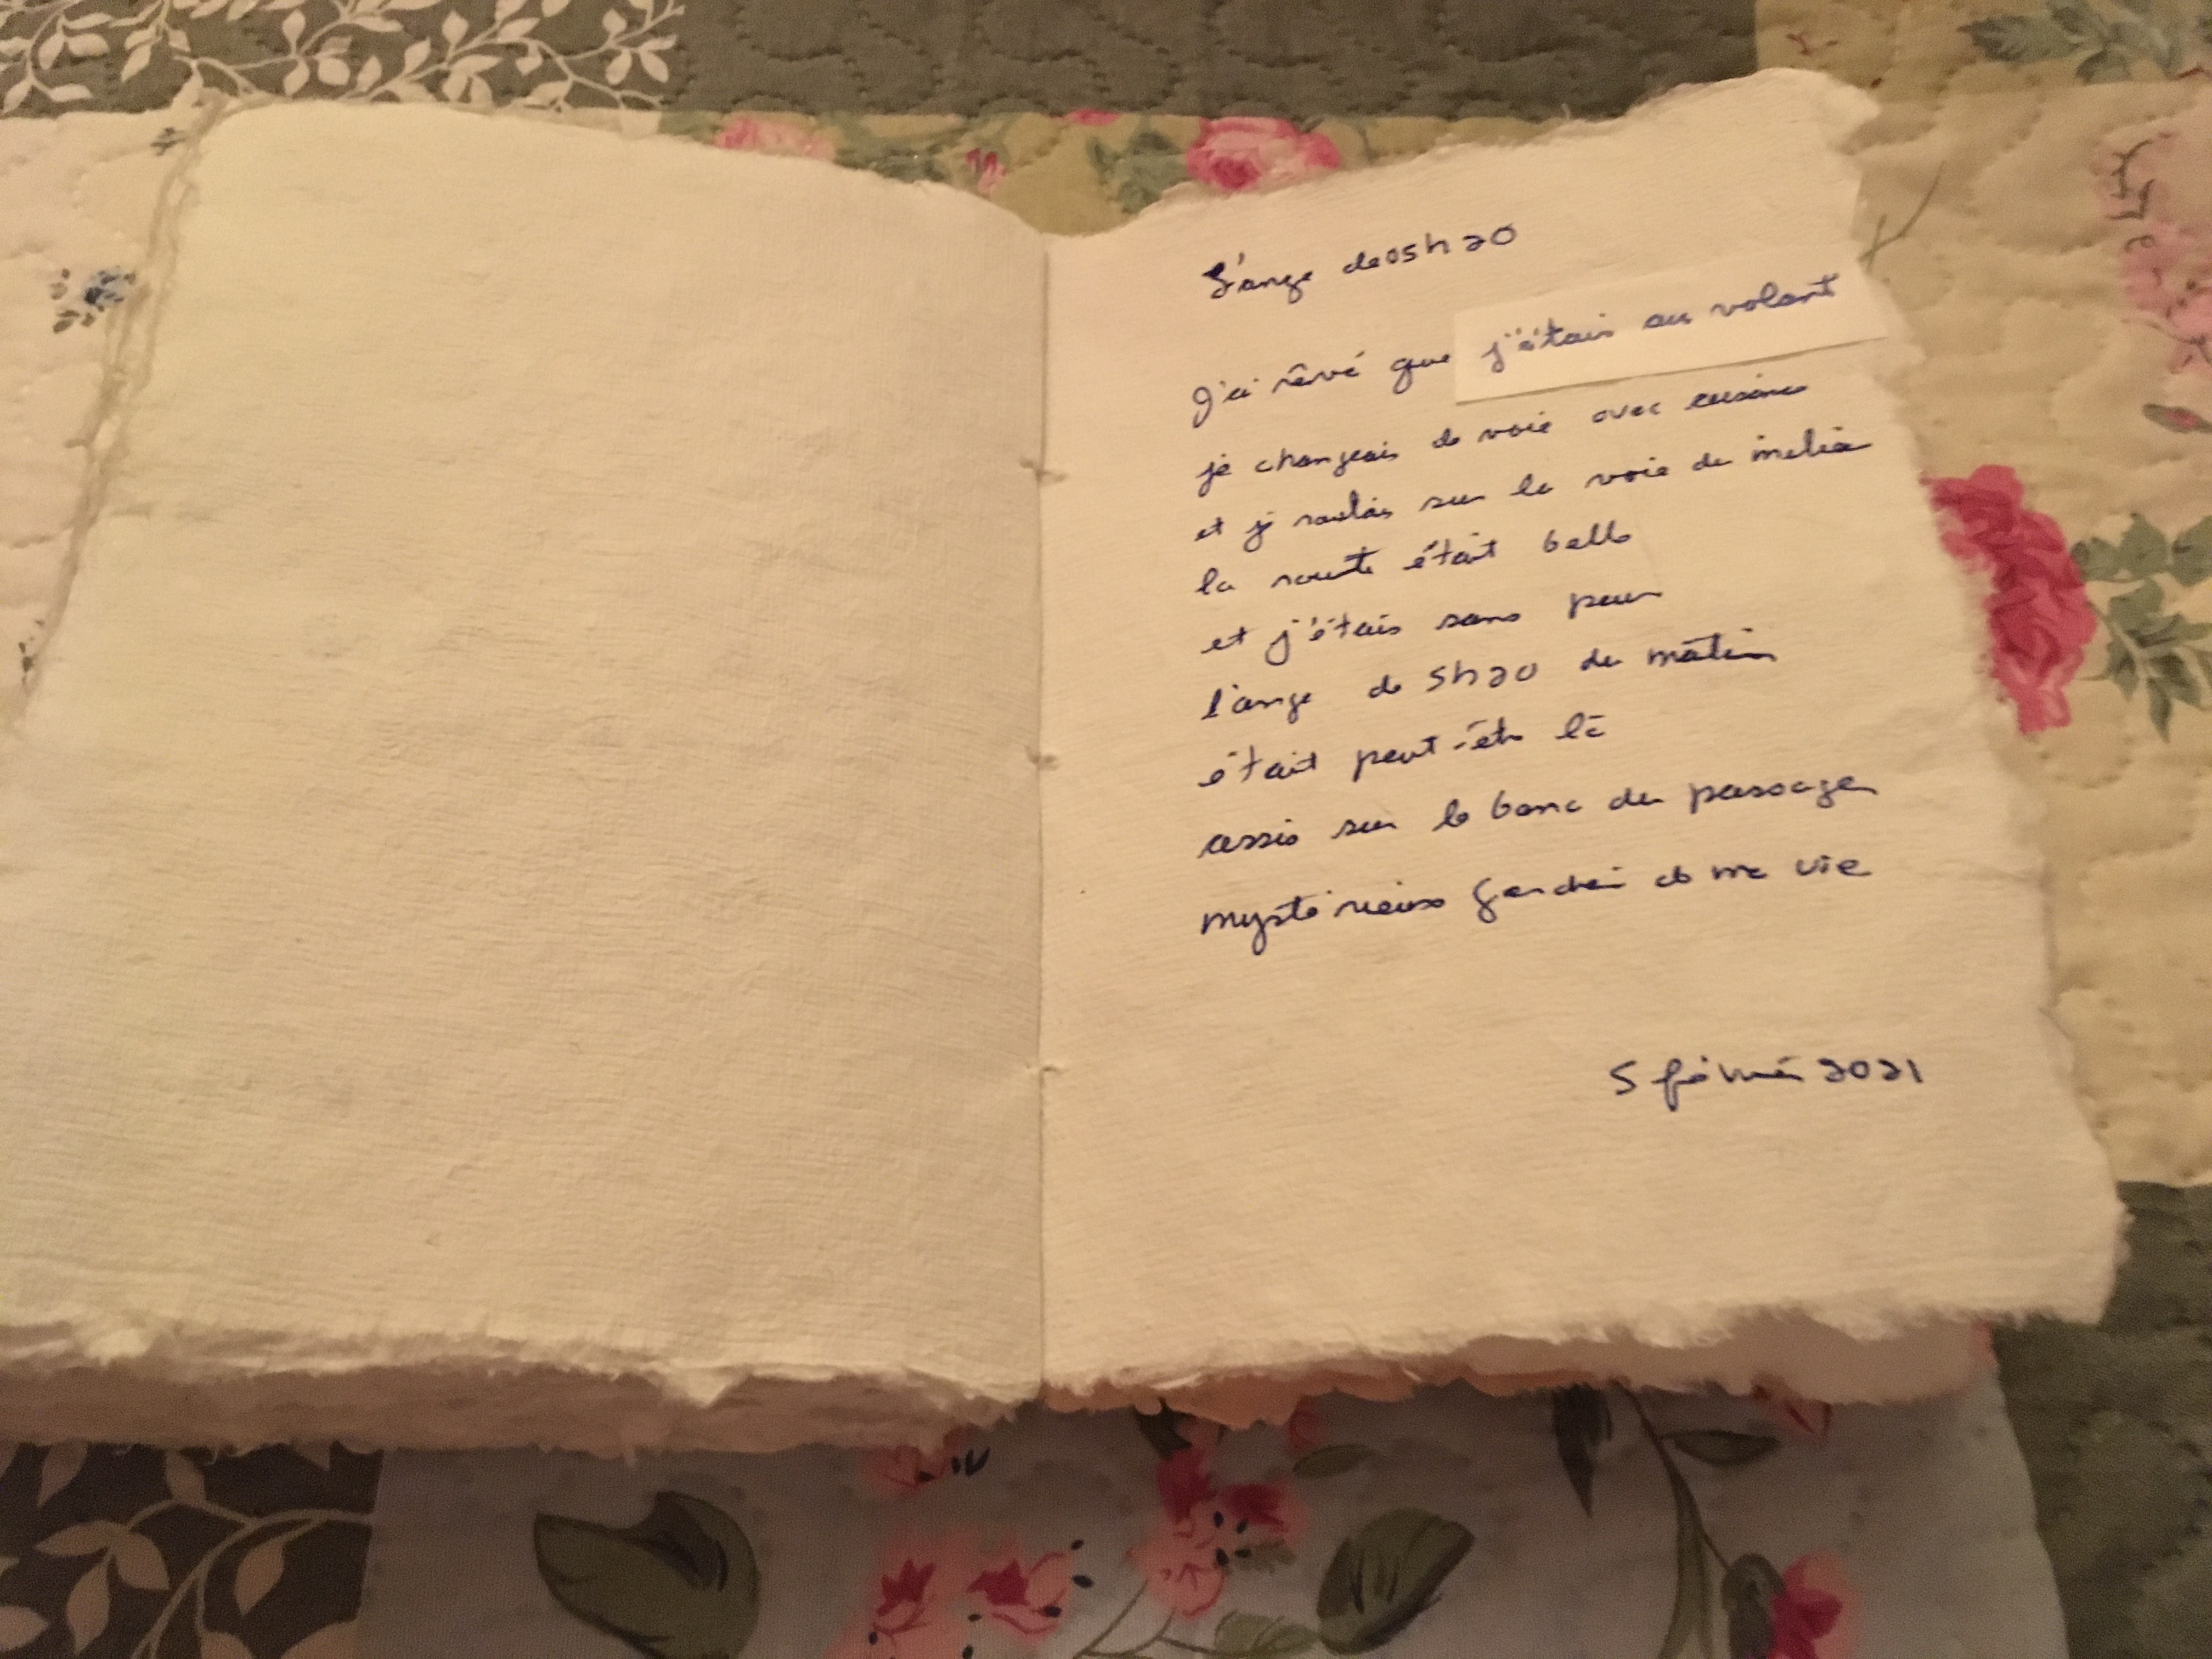 L'ange de 05h20
J'ai rêvé que j'étais au volant
je changeais de voie avec aisance
et je roulais sur la voie du milieu
la route était belle
et j'étais sans peur
l'ange de 5h20 du matin
était peut-être là
assis sur le banc du passager
mystérieux gardien de ma vie
5 février 2021